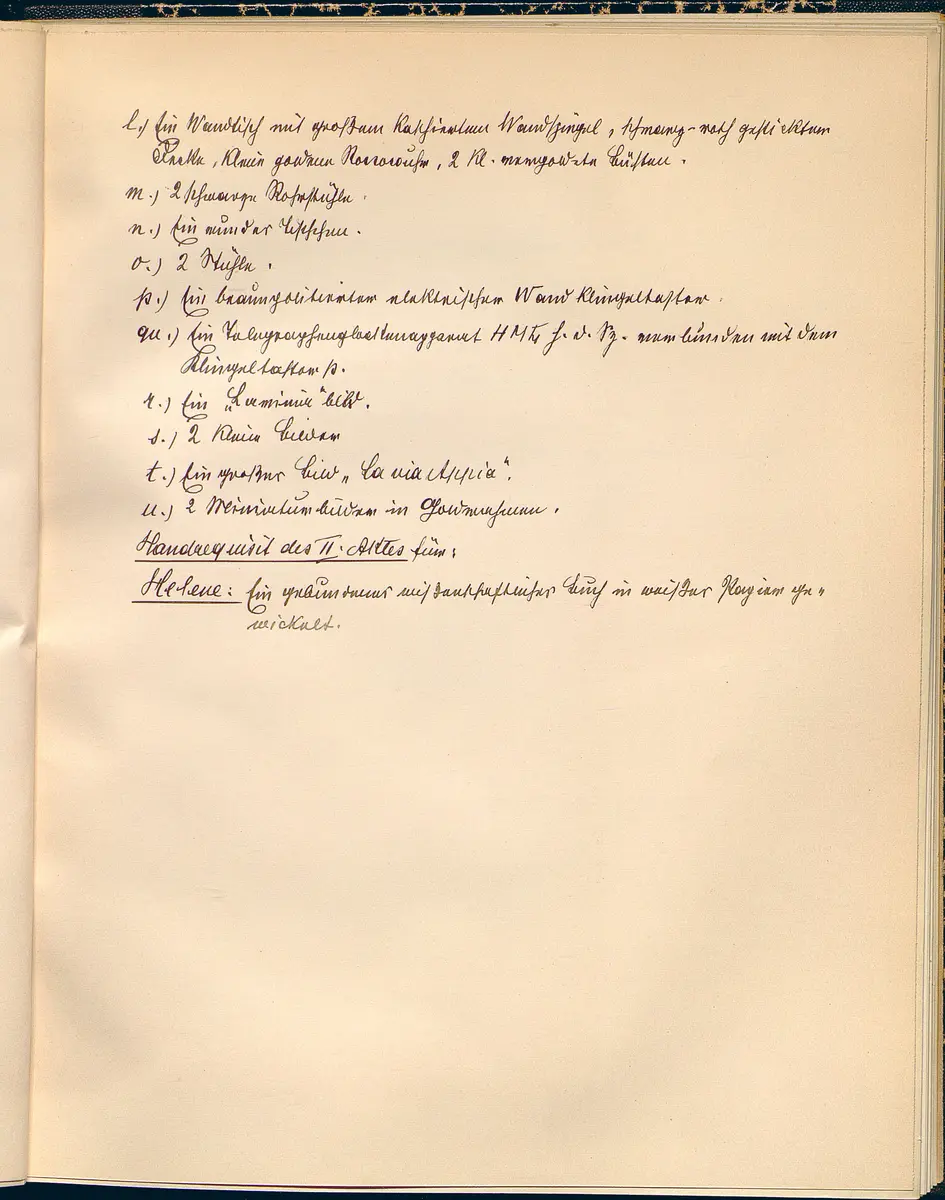 l.) Ein Wandtisch mit großem kaschierten Wandspiegel, schwarz-roth gestickten
Decke, kleine goldene Rococouhr, 2 kl. vergoldete Büsten.
m.) 2 schwarze Rohrstühle.
n.) Ein runder Tischchen.
o.) 2 Stühle.
p.) Ein braunpolitierter elektrischer Wand Klingeltaster.
qu.) Ein Telegraphenglockenapparat h. d. Sz. verbunden mit dem
Klingeltaster p.
r.) Ein "Lavinia" bild.
s.) 2 kleine Bilder
t.) Ein großes Bild "La via Appia".
u.) 2 Miniaturbilder in Goldrahmen.
Handrequisit des II. Aktes für:
Helene: Ein gebundenes wißenschaftliches Buch in weißes Papier ge-
wickelt.